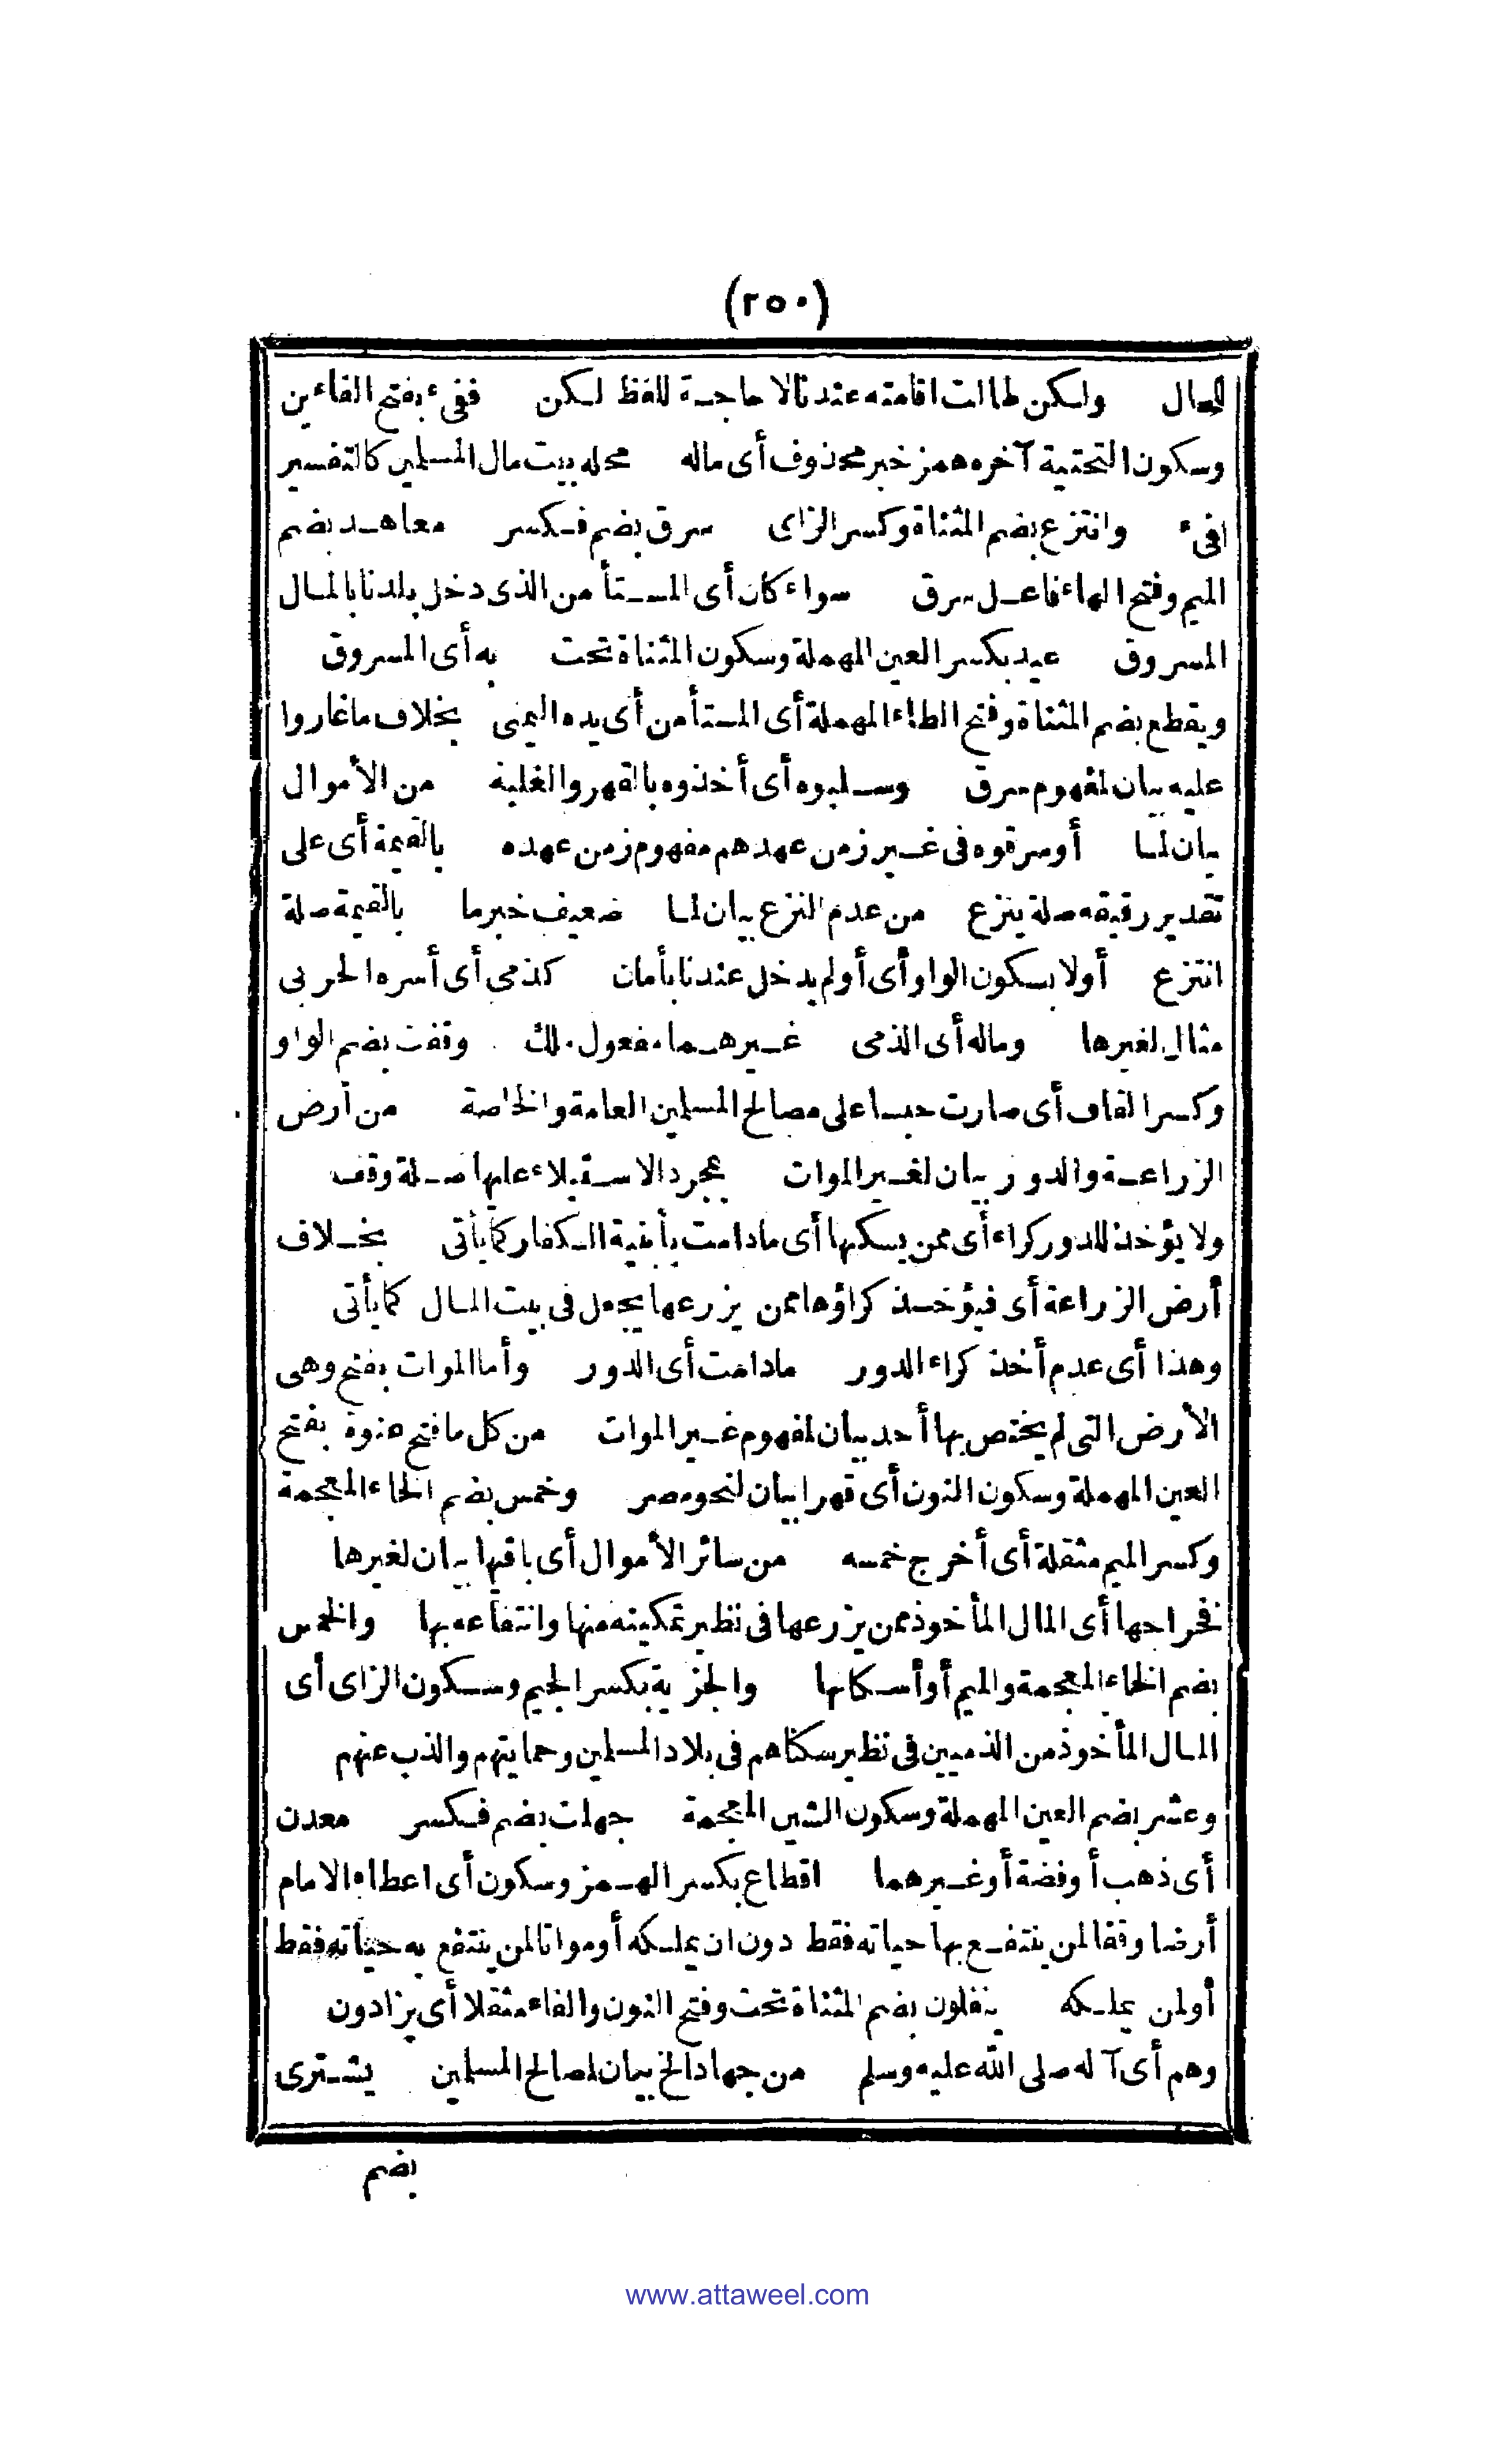 (٢٥٠)
للحال ولكن طالت اقامته عندنا لا حاجة للفظ لكن ففىء بفتح الفاءين
وسكون التحتية آخره همز خبر محذوف أى ماله محله بيت مال المسلمين كالتفسير
لفىء وانتزع بضم المثناة وكسر الزاى سرق بضم فكسر معاهد بضم
الميم وفتح الهاء فاعل سرق سواء كان أى المستأمن الذى دخل بلدنا بالمال
المسروق عيد بكسر العين المهملة وسكون المثناة تحت به أى المسروق
ويقطع بضم المثناة وفتح الطاء المهملة أى المستأمن أى يده اليمنى بخلاف ما غاروا
عليه بيان لمفهوم سرق وسلبوه أى أخذوه بالقهر والغلبة من الأموال
بيان لما أو سرقوه فى غير زمن عهدهم مفهوم زمن عهده بالقيمة أى على
تقدير رقيقه صلة ينزع من عدم النزع بيان لما ضعيف خبر ما بالقيمة صلة
انتزع أولا بسكون الواو أى أو لم يدخل عندنا بأمان كذمى أى أسره الحربى
مثال لغيرها وماله أى الذمى غيرهما مفعول ملك وقفت بضم الواو
وكسر القاف أى صارت حبسا على مصالح المسلمين العامة والخاصة من أرض
الزراعة والدور بيان لغير الموات بمجرد الاستيلاء عليها صلة وقف
ولا يؤخذ للدور كراء أى ممن يسكنها أى ما دامت بأبنية الكفار كما يأتى بخلاف
أرض الزراعة أى فيؤخذ كراؤها ممن يزرعها يجعل فى بيت المال كما يأتى
وهذا أى عدم أخذ كراء الدور ما دامت أى الدور وأما الموات بفتح وهى
الأرض التى لم يختص بها أحد بيان لمفهوم غير الموات من كل ما فتح عنوة بفتح
العين المهملة وسكون النون أى قهرا بيان لنحو مصر وخمس بضم الخاء المعجمة
وكسر الميم مثقلة أى أخرج خمسه من سائر الأموال أى باقيها بيان لغيرها
فخراجها أى المال المأخوذ ممن يزرعها فى نظير تمكينه منها وانتفاعه بها والخمس
بضم الخاء المعجمة والميم أو أسكانها والجزية بكسر الجيم وسكون الزاى أى
المال المأخوذ من الذميين فى نظير سكناهم فى بلاد المسلمين وحمايتهم والذب عنهم
وعشر بضم العين المهملة وسكون الشين المعجمة جهلت بضم فكسر معدن
أى ذهب أو فضة أو غيرهما اقطاع بكسر الهمز وسكون أى اعطاء الامام
أرضا وقفا لمن ينتفع بها حياته فقط دون ان يملكه أو مواتا لمن ينتفع به حياته فقط
أو لمن يملكه ينفلون بضم المثناة تحت وفتح النون والفاء مثقلا أى يزادون
وهم أى آله صلى الله عليه وسلم من جهاد الخ بيان لمصالح المسلمين يشترى
بضم
www.attaweel.com